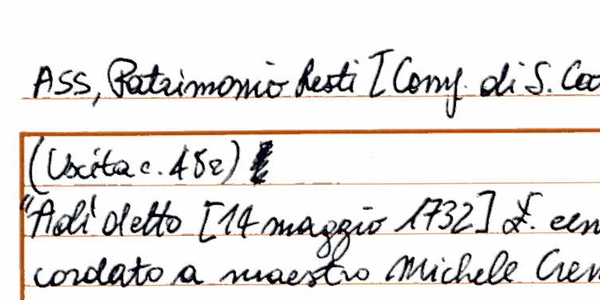 ASS, Patrimonio Resti [Comp. di S.
(Uscita c. 452)
"Adi detto [14 maggio 1732] £.
cordato a maestro Michele